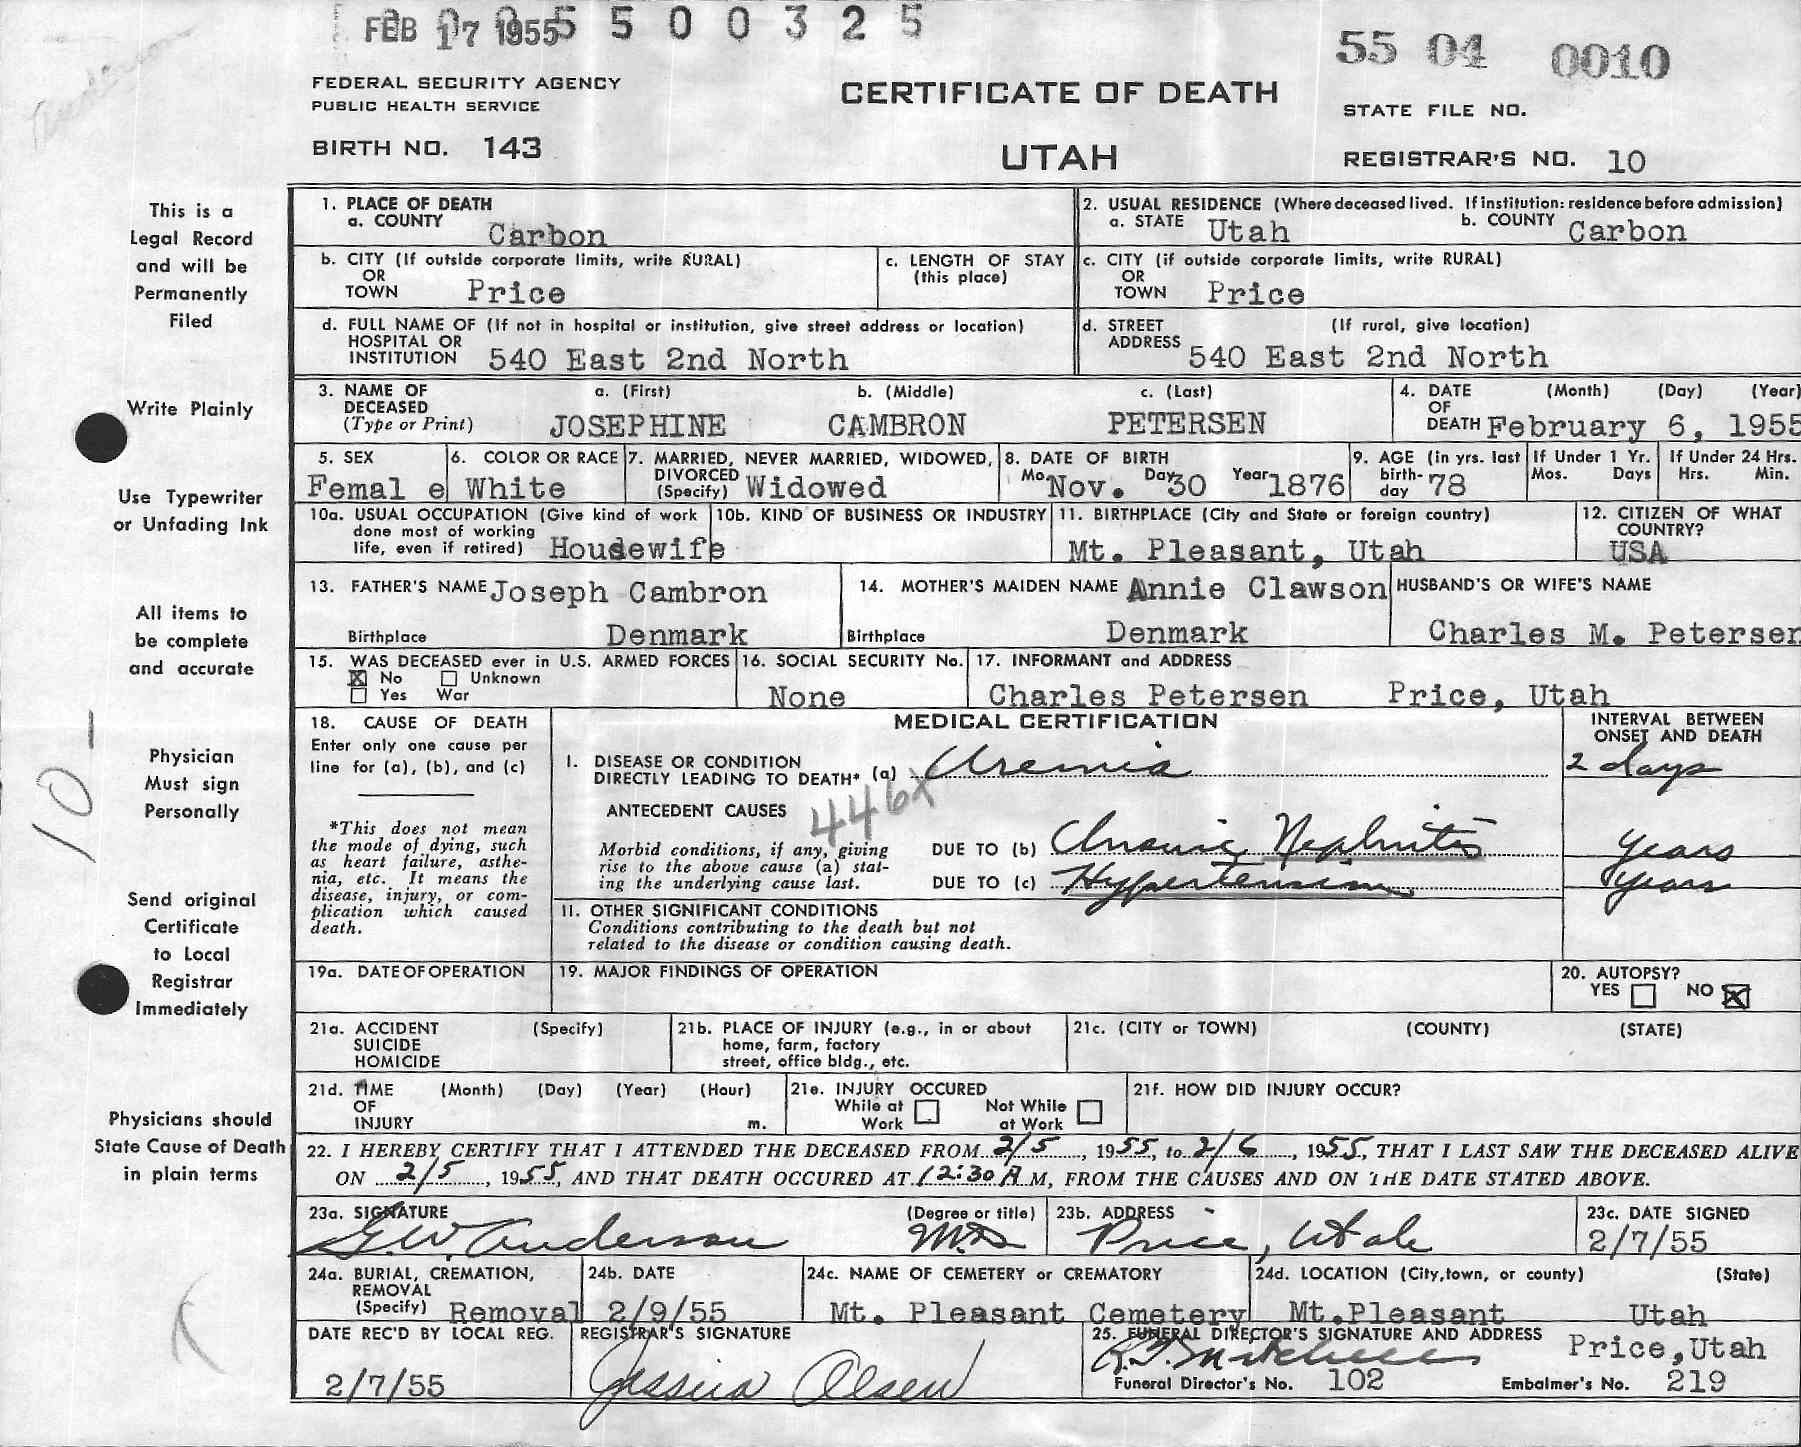 FEB 17 1955 5 5 0 0 3 2 5
55 04 0010
FEDERAL SECURITY AGENCY
PUBLIC HEALTH SERVICE
CERTIFICATE OF DEATH
STATE FILE NO.
BIRTH NO. 143
UTAH
REGISTRAR'S NO. 10
This is a
Legal Record
and will be
Permanently
Filed
Write Plainly
Use Typewriter
or Unfading Ink
All items to
be complete
and accurate
10 -
Physician
Must sign
Personally
Send original
Certificate
to Local
Registrar
Immediately
Physicians should
State Cause of Death
in plain terms
1. PLACE OF DEATH
a. COUNTY Carbon
2. USUAL RESIDENCE (Where deceased lived. If institution: residence before admission)
a. STATE Utah b. COUNTY Carbon
b. CITY (If outside corporate limits, write RURAL)
OR
TOWN Price
c. LENGTH OF STAY
(this place)
c. CITY (if outside corporate limits, write RURAL)
OR
TOWN Price
d. FULL NAME OF (If not in hospital or institution, give street address or location)
HOSPITAL OR
INSTITUTION 540 East 2nd North
d. STREET (If rural, give location)
ADDRESS 540 East 2nd North
3. NAME OF a. (First) b. (Middle) c. (Last)
DECEASED
(Type or Print) JOSEPHINE CAMBRON PETERSEN
4. DATE (Month) (Day) (Year)
OF
DEATH February 6, 1955
5. SEX
Femal e
6. COLOR OR RACE
White
7. MARRIED, NEVER MARRIED, WIDOWED,
DIVORCED
(Specify) Widowed
8. DATE OF BIRTH
Mo. Nov. Day 30 Year 1876
9. AGE (in yrs. last
birth-
day 78
If Under 1 Yr.
Mos. Days
If Under 24 Hrs.
Hrs. Min.
10a. USUAL OCCUPATION (Give kind of work
done most of working
life, even if retired) Housewife
10b. KIND OF BUSINESS OR INDUSTRY
11. BIRTHPLACE (City and State or foreign country)
Mt. Pleasant, Utah
12. CITIZEN OF WHAT
COUNTRY?
USA
13. FATHER'S NAME Joseph Cambron
Birthplace Denmark
14. MOTHER'S MAIDEN NAME Annie Clawson
Birthplace Denmark
HUSBAND'S OR WIFE'S NAME
Charles M. Petersen
15. WAS DECEASED ever in U.S. ARMED FORCES
X No Unknown
Yes War
16. SOCIAL SECURITY No.
None
17. INFORMANT and ADDRESS
Charles Petersen Price, Utah
18. CAUSE OF DEATH
Enter only one cause per
line for (a), (b), and (c)
*This does not mean
the mode of dying, such
as heart failure, asthe-
nia, etc. It means the
disease, injury, or com-
plication which caused
death.
MEDICAL CERTIFICATION
INTERVAL BETWEEN
ONSET AND DEATH
I. DISEASE OR CONDITION
DIRECTLY LEADING TO DEATH* (a) Uremia 2 days
ANTECEDENT CAUSES 446X
Morbid conditions, if any, giving
rise to the above cause (a) stat-
ing the underlying cause last.
DUE TO (b) Chronic Nephritis years
DUE TO (c) Hypertension years
II. OTHER SIGNIFICANT CONDITIONS
Conditions contributing to the death but not
related to the disease or condition causing death.
19a. DATE OF OPERATION
19. MAJOR FINDINGS OF OPERATION
20. AUTOPSY?
YES NO X
21a. ACCIDENT (Specify)
SUICIDE
HOMICIDE
21b. PLACE OF INJURY (e.g., in or about
home, farm, factory
street, office bldg., etc.
21c. (CITY or TOWN) (COUNTY) (STATE)
21d. TIME (Month) (Day) (Year) (Hour)
OF
INJURY m.
21e. INJURY OCCURED
While at Not While
Work at Work
21f. HOW DID INJURY OCCUR?
22. I HEREBY CERTIFY THAT I ATTENDED THE DECEASED FROM 2/5, 1955, to 2/6, 1955, THAT I LAST SAW THE DECEASED ALIVE
ON 2/5, 1955, AND THAT DEATH OCCURED AT 12:30 A M, FROM THE CAUSES AND ON THE DATE STATED ABOVE.
23a. SIGNATURE (Degree or title)
G.W. Anderson M.D.
23b. ADDRESS
Price, Utah
23c. DATE SIGNED
2/7/55
24a. BURIAL, CREMATION,
REMOVAL
(Specify) Removal
24b. DATE
2/9/55
24c. NAME OF CEMETERY or CREMATORY
Mt. Pleasant Cemetery
24d. LOCATION (City, town, or county) (State)
Mt.Pleasant Utah
DATE REC'D BY LOCAL REG.
2/7/55
REGISTRAR'S SIGNATURE
Olsen
25. FUNERAL DIRECTOR'S SIGNATURE AND ADDRESS
Price, Utah
Mitchell
Funeral Director's No. 102 Embalmer's No. 219